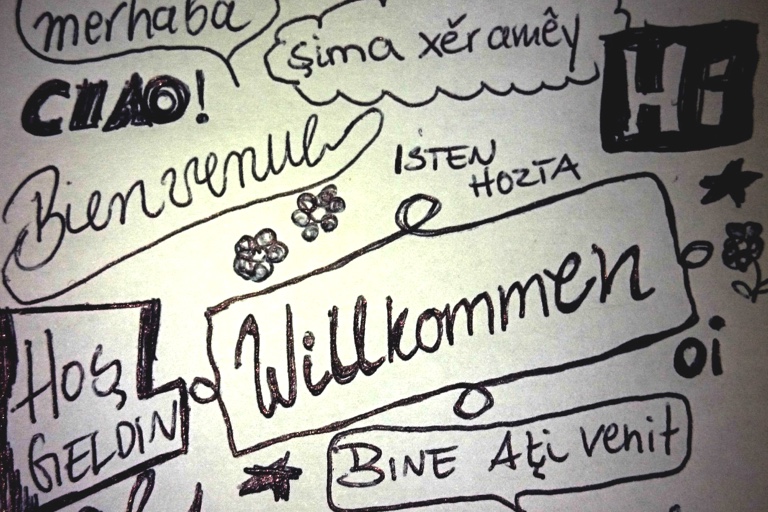 merhaba
şima xêr amêy
CIAO!
Hi
Bienvenue
ISTEN
HOZTA
Willkommen
oi
HOŞ
GELDIN
BINE Aţi venit